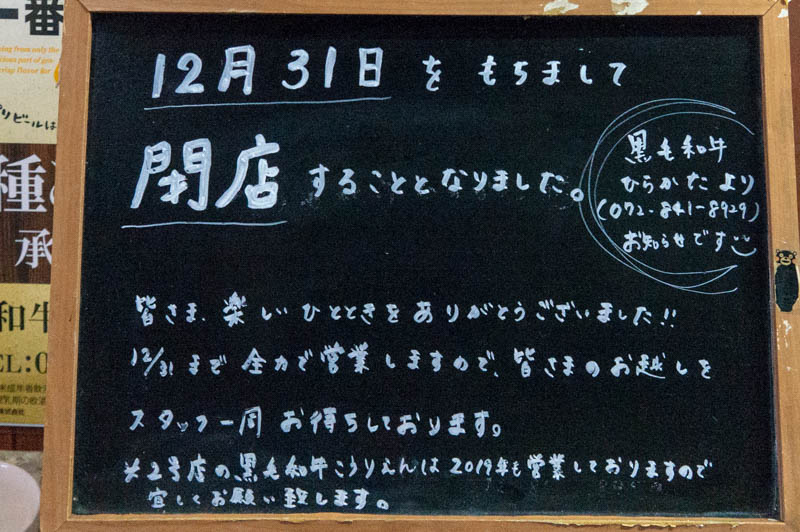 12月31日をもちまして
閉店することとなりました。
黒毛和牛
ひらかたより
(072-841-8929)
お知らせです
皆さま、楽しいひとときをありがとうございました!!
12/31まで全力で営業しますので、皆さまのお越しを
スタッフ一同お待ちしております。
※2号店の黒毛和牛こうりえんは2019年も営業しておりますので
宜しくお願い致します。
一番
種
承
和牛
TEL:0